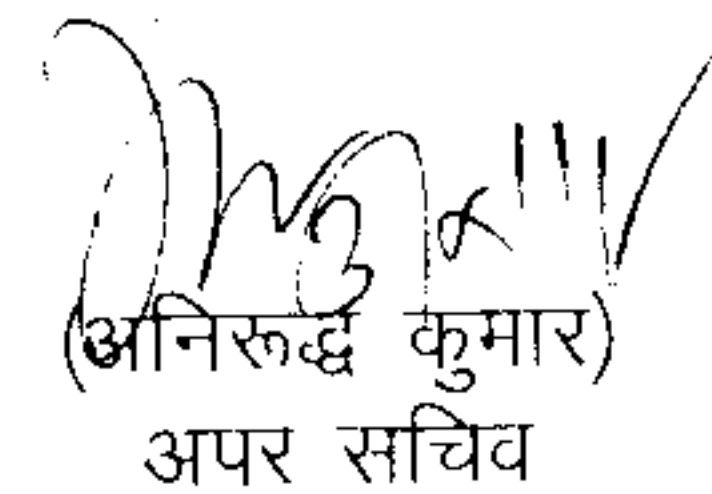 (अनिरूद्ध कुमार)
अपर सचिव